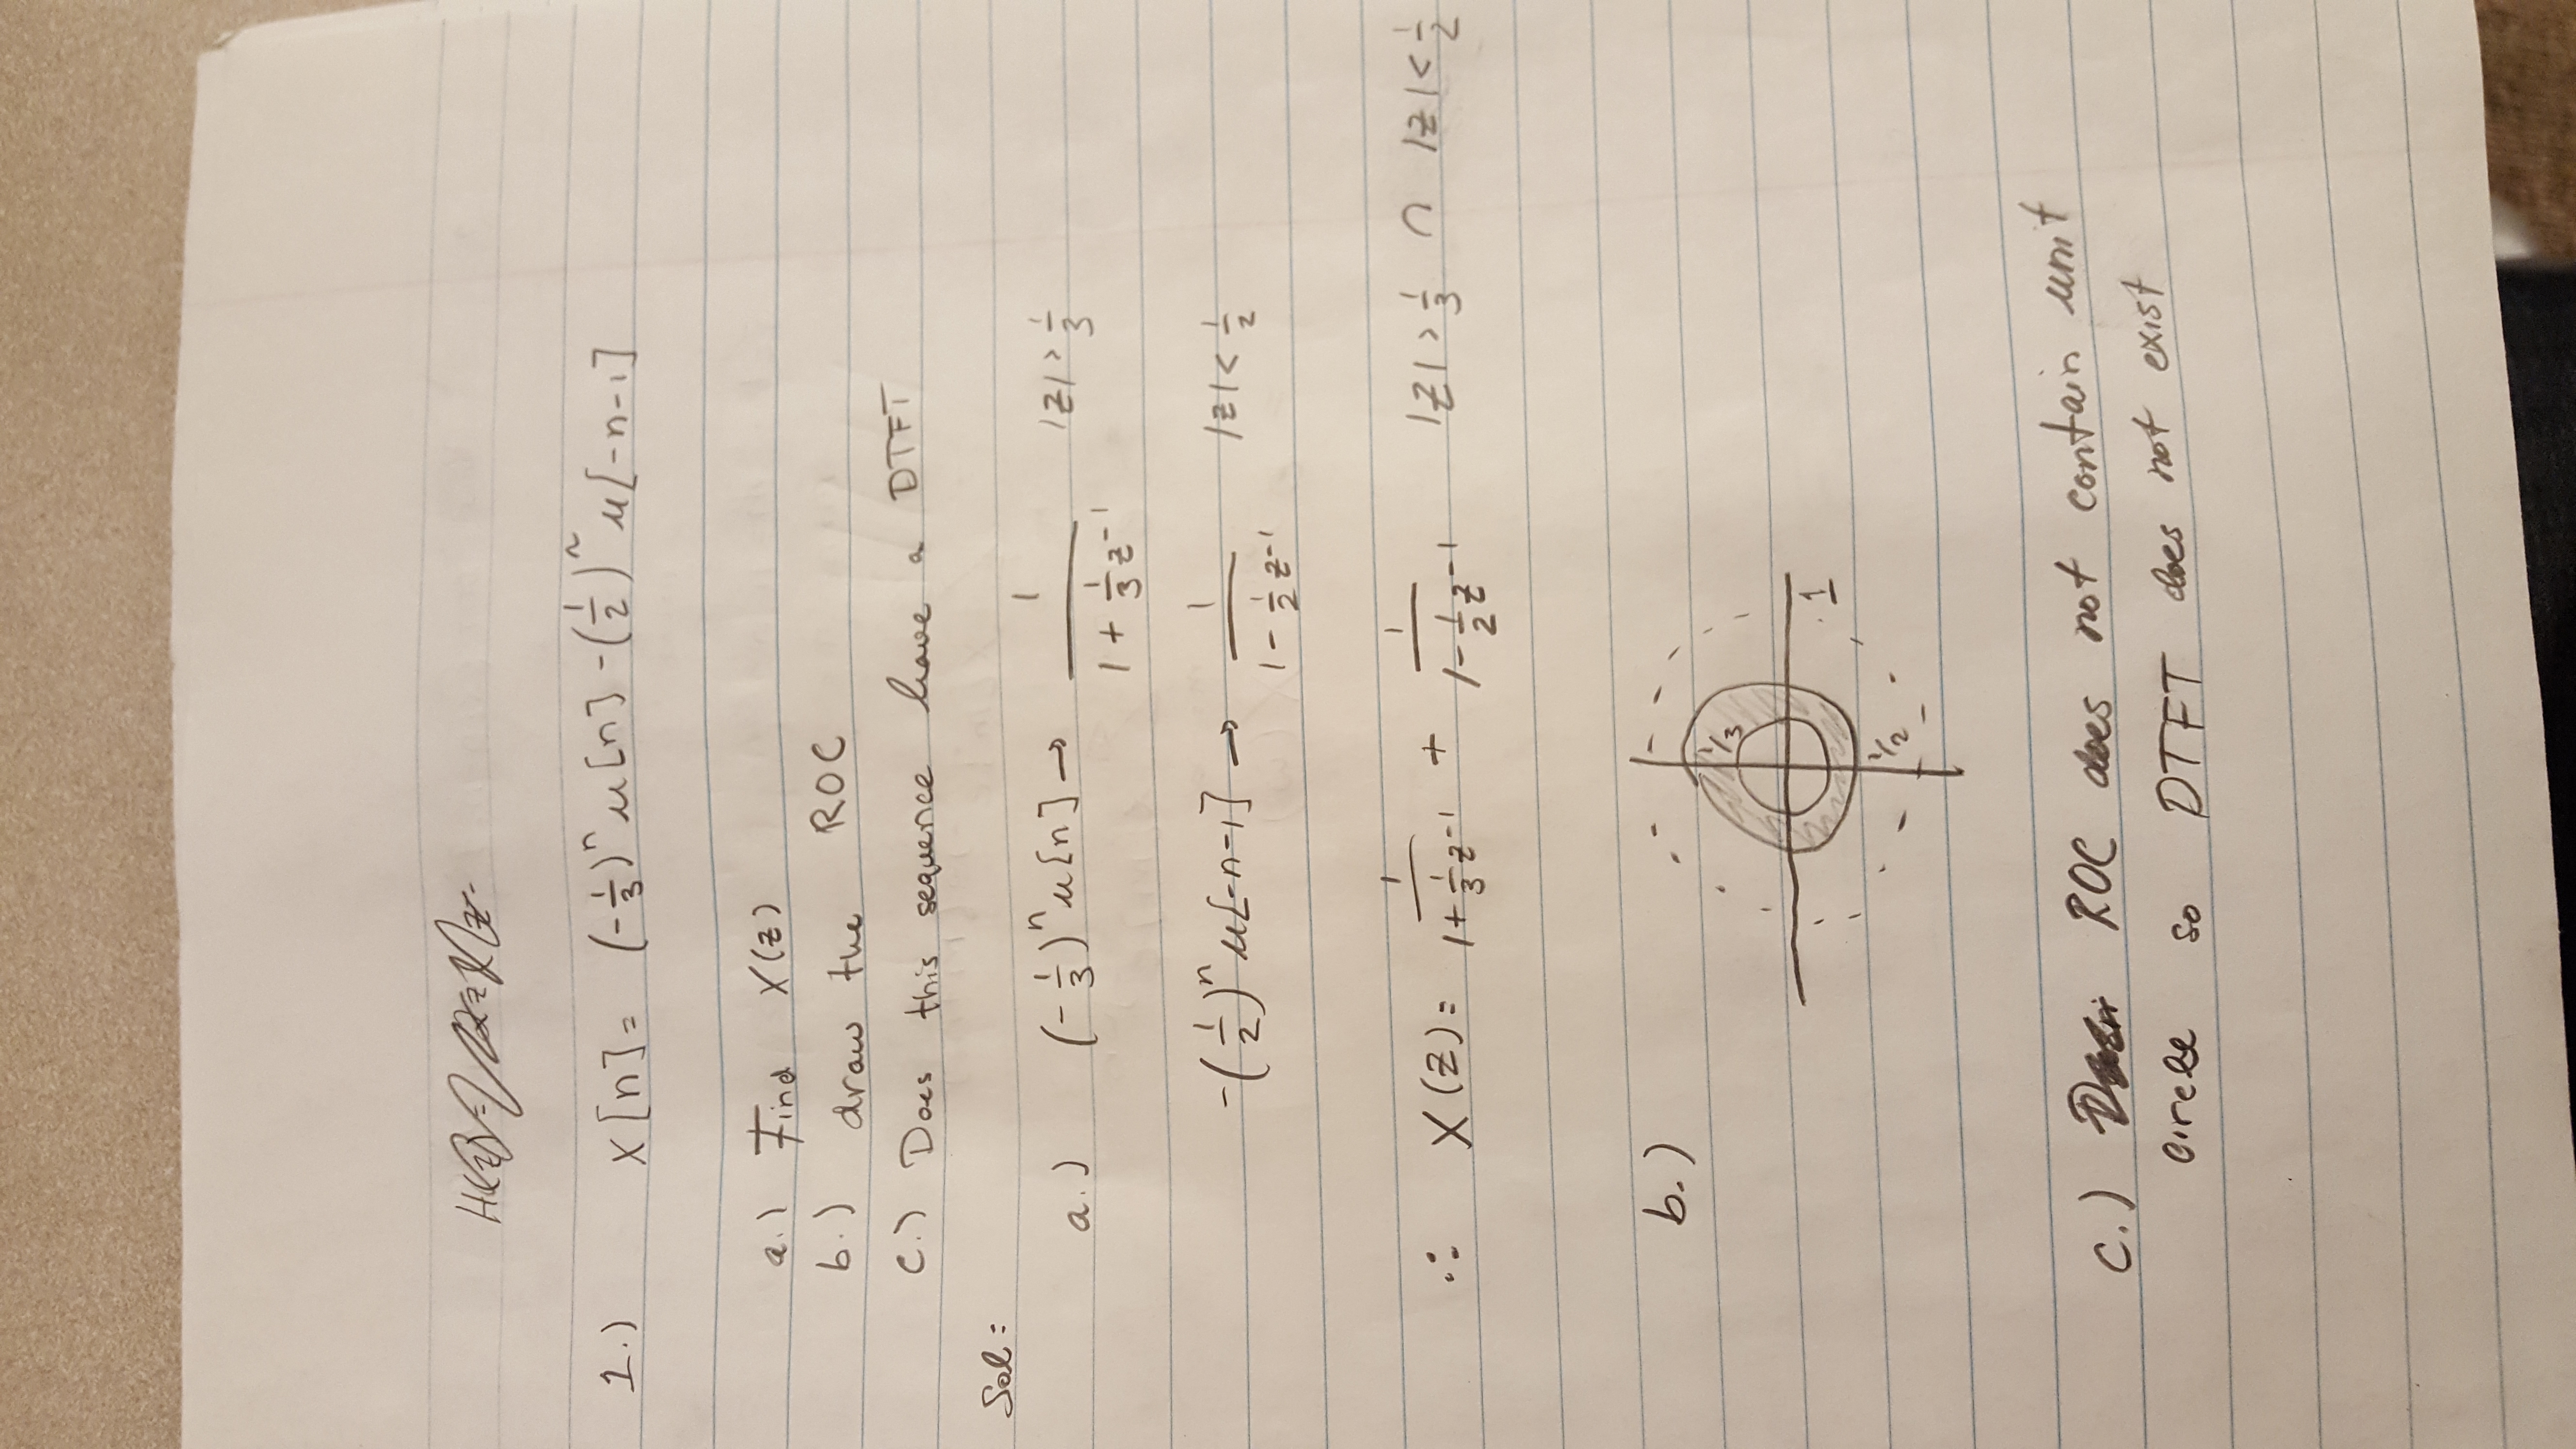 1.) x[n] = (-1/3)^n u[n] - (1/2)^n u[-n-1]
a.) Find X(z)
b.) draw the ROC
c.) Does this sequence have a DTFT
Sol:
a.) (-1/3)^n u[n] → 1/(1 + 1/3 z^-1) |z| > 1/3
-(1/2)^n u[-n-1] → 1/(1 - 1/2 z^-1) |z| < 1/2
∴ X(z) = 1/(1 + 1/3 z^-1) + 1/(1 - 1/2 z^-1) |z| > 1/3 ∩ |z| < 1/2
b.)
1/3
1
1/2
c.) ROC does not contain unit
circle so DTFT does not exist